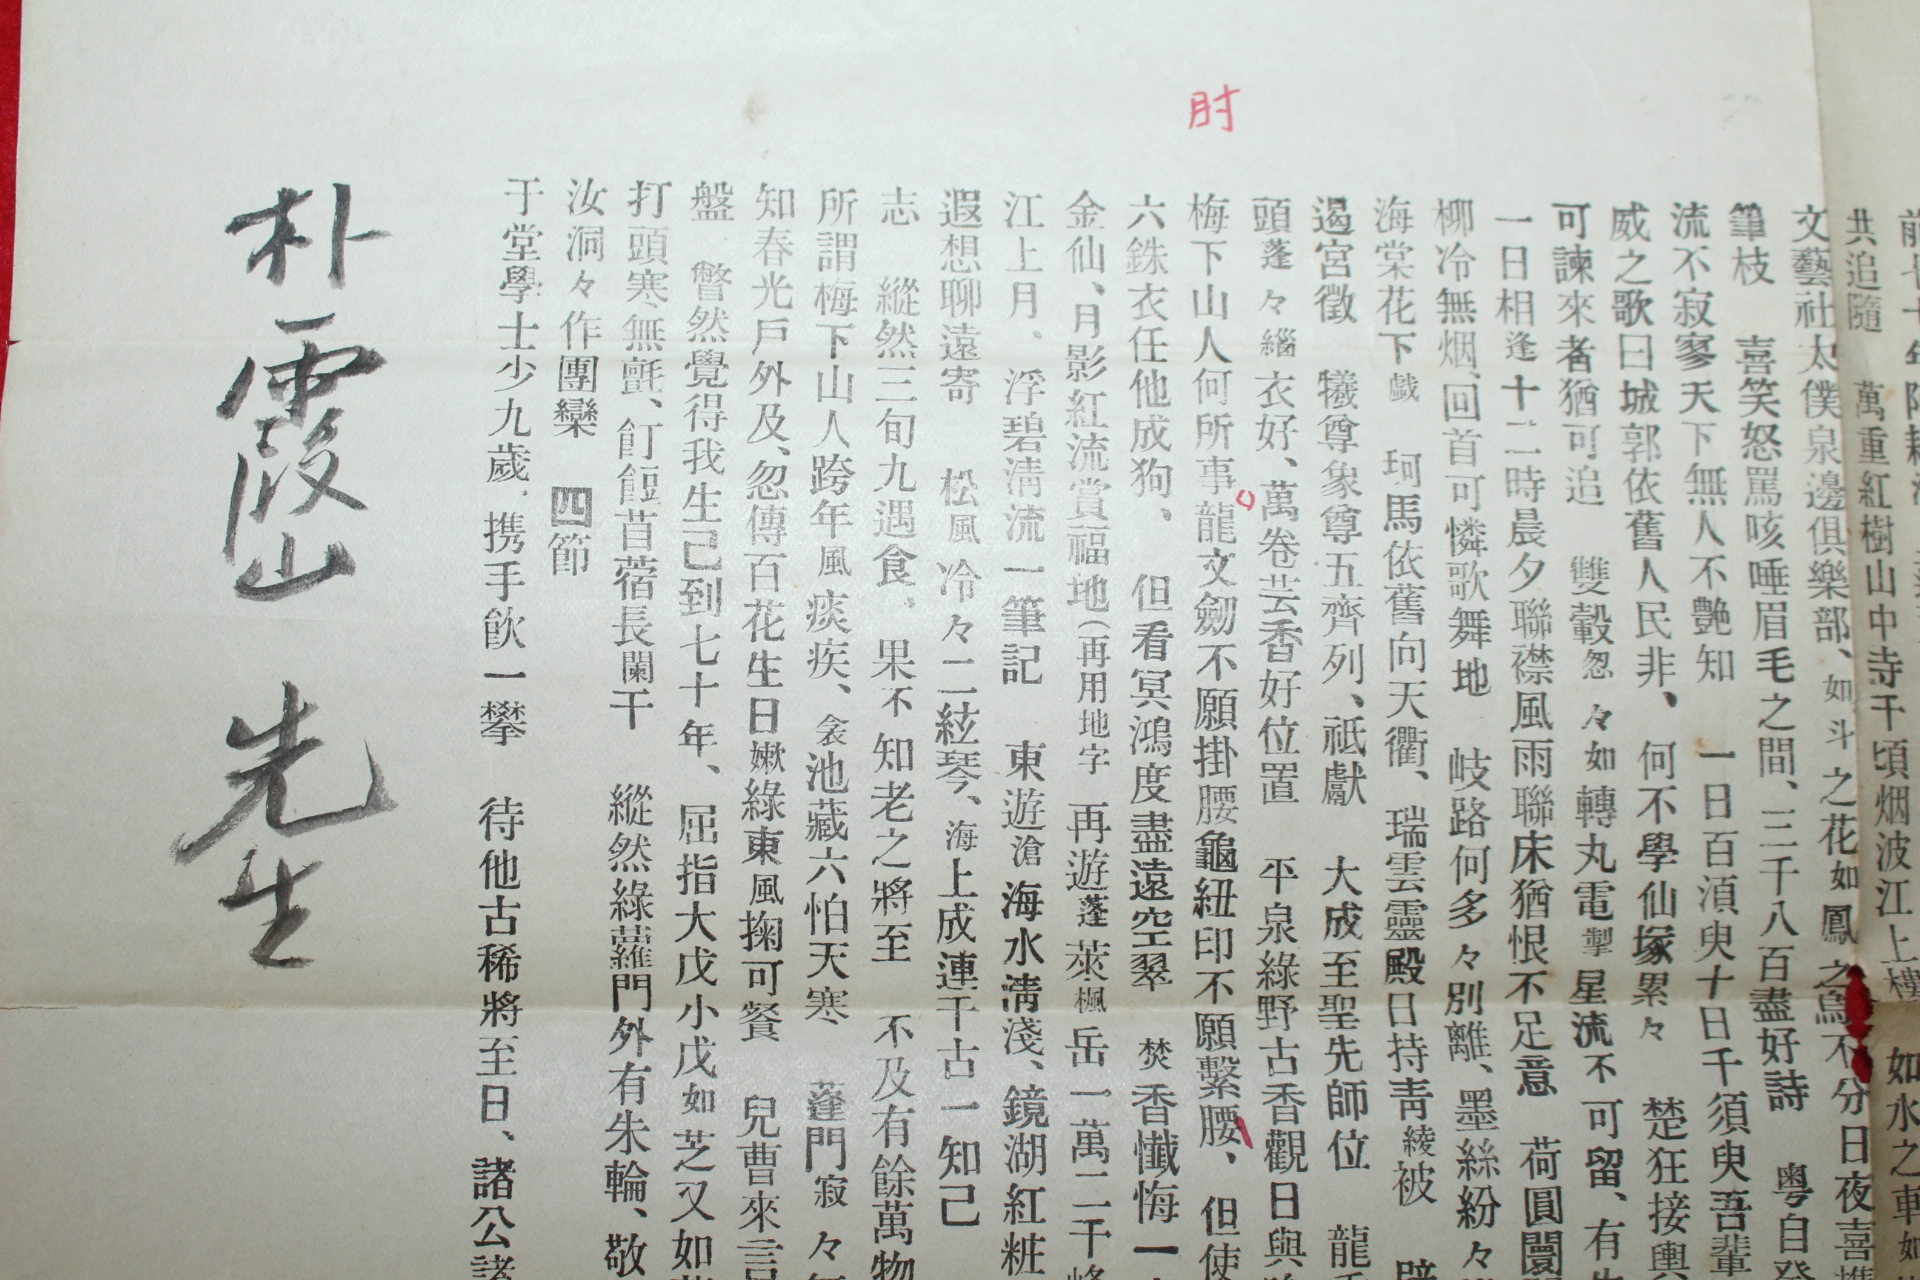 肘
前七十年
共追隨　萬重紅樹山中寺千頃烟波江上樓　如水之車如
文藝社太僕泉邊俱樂部、如斗之花如鳳之鳥不分日夜喜携
筆枝　喜笑怒罵咳唾眉毛之間、三千八百盡好詩　粵自發
流不寂寥天下無人不艶知　一日百湏臾十日千須臾吾輩
威之歌曰城郭依舊人民非、何不學仙塚累々　楚狂接輿
可諫來者猶可追　雙轂忽々如轉丸電掣星流不可留、有生
一日相逢十二時晨夕聯襟風雨聯床猶恨不足意　荷圓闅
柳冷無烟、回首可憐歌舞地　岐路何多々別離、墨絲紛々
海棠花下戱　珂馬依舊向天衢、瑞雲靈殿日持靑綾被
遏宮徵　犧尊象尊五齊列、祗獻　大成至聖先師位　龍
頭蓬々緇衣好、萬卷芸香好位置　平泉綠野古香觀日與
梅下山人何所事龍文劒不願掛腰龜紐印不願繫腰、但使
六銖衣任他成狗、　但看冥鴻度盡遠空翠　焚香懺悔一
金仙、月影紅流賞福地(再用地字　再遊蓬萊楓岳一萬二千峰
江上月、浮碧淸流一筆記　東遊滄海水淸淺、鏡湖紅粧
遐想聊遠寄　松風冷々二絃琴、海上成連千古一知己
志　縱然三旬九遇食、果不知老之將至　不及有餘萬物
所謂梅下山人跨年風痰疾、衾池藏六怕天寒　蓬門寂々
知春光戶外及、忽傳百花生日嫩綠東風掬可餐　兒曹來言
盤　瞥然覺得我生己到七十年、屈指大戊小戊如芝又如
打頭寒無氈、飣餖苜蓿長闌干　縱然綠蘿門外有朱輪、敬
汝洞々作團欒　四節
于堂學士少九歲、携手飮一攀　待他古稀將至日、諸公諸
朴霞山　先生